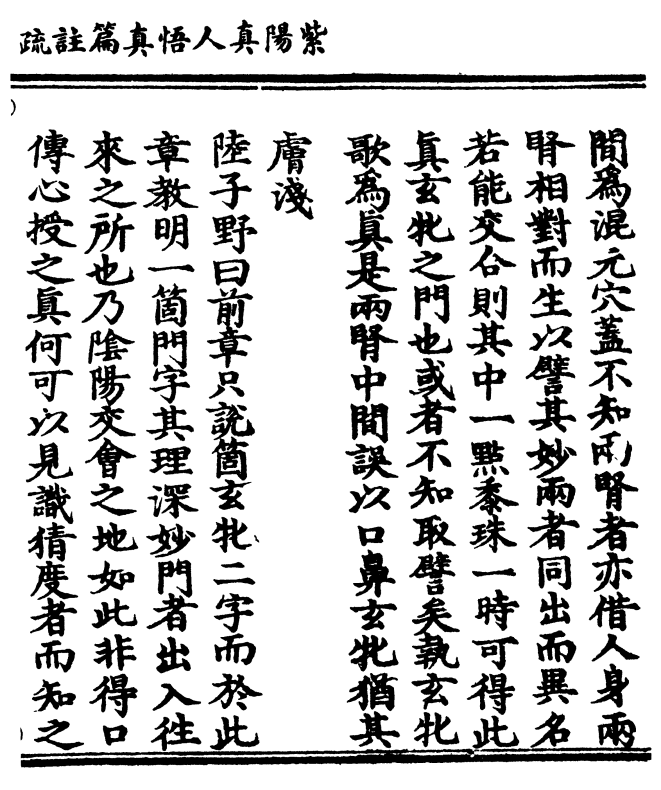 紫陽真人悟真篇註疏
間爲混元穴蓋不知兩腎者亦借人身兩
腎相對而生以譬其妙兩者同出而異名
若能交合則其中一點黍珠一時可得此
眞玄牝之門也或者不知取譬矣執玄牝
歌爲眞是兩腎中間誤以口鼻玄牝猶其
膚淺
陸子野曰前章只說箇玄牝二字而於此
章教明一箇門字其理深妙門者出入徃
來之所也乃陰陽交會之地如此非得口
傳心授之眞何可以見識猜度者而知之